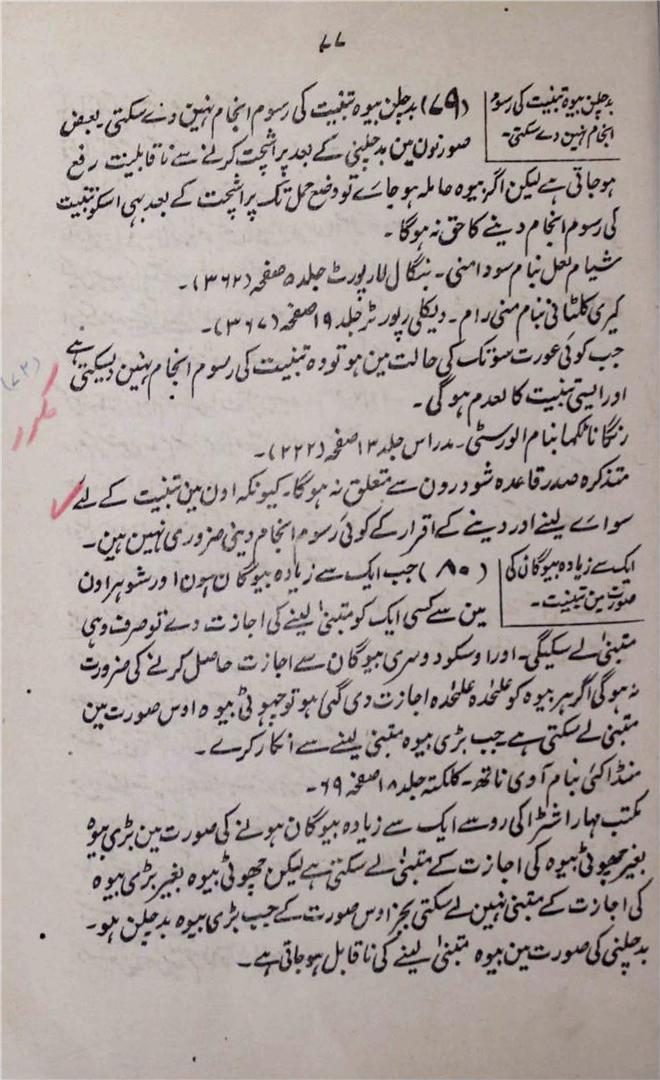 ۷۷
بد چلن بیوہ تبنیت کی رسوم
انجام نہین دے سکتی۔
(۷۹) بد چلن بیوہ تبنیت کی رسوم انجام نہین دے سکتی۔ بعض
صورتون مین بد چلنی کے بعد پراشچت کرنے سے ناقابلیت رفع
ہوجاتی ہے لیکن اگر بیوہ حاملہ ہو جاے تو وضع حمل تک پراشچت کے بعد بھی اسکو تبنیت
کی رسوم انجام دینے کا حق نہ ہوگا۔
شیام لعل بنام سودامنی۔ بنگال لا رپورٹ جلد ۵ صفحہ (۳۶۲)۔
کیری کلٹانی بنام منی رام۔ ویکلی رپورٹر جلد ۱۹ صفحہ (۳۶۷)۔
جب کوئی عورت سوتک کی حالت مین ہو تو وہ تبنیت کی رسوم انجام نہین دیسکتی ہے
اور ایسی تبنیت کالعدم ہوگی۔
مکرر
رنگانائکما بنام الورسٹی۔ مدراس جلد ۱۳ صفحہ (۲۲۲)۔
متذکرہ صدر قاعدہ شودرون سے متعلق نہ ہوگا۔ کیونکہ اون مین تبنیت کے لئے
سواے لینے اور دینے کے اقرار کے کوئی رسوم انجام دینی ضروری نہین ہین۔
ایک سے زیادہ بیوگان کی
صورت مین تبنیت۔
(۸۰) جب ایک سے زیادہ بیوگان ہون اور شوہر اون
مین سے کسی ایک کو متبنیٰ لینے کی اجازت دے تو صرف وہی
متبنیٰ لے سکیگی۔ اور اوسکو دوسری بیوگان سے اجازت حاصل کرنے کی ضرورت
نہ ہوگی اگر ہر بیوہ کو علٰحدہ علٰحدہ اجازت دی گئی ہو تو چھوٹی بیوہ اوس صورت مین
متبنیٰ لے سکتی ہے جب بڑی بیوہ متبنیٰ لینے سے انکار کرے۔
منڈاکنی بنام آدی ناتھ۔ کلکتہ جلد ۱۸ صفحہ ۶۹۔
مکتب مہاراشٹرا کی روسے ایک سے زیادہ بیوگان ہونے کی صورت مین بڑی بیوہ
بغیر چھوٹی بیوہ کی اجازت کے متبنیٰ لے سکتی ہے لیکن چھوٹی بیوہ بغیر بڑی بیوہ
کی اجازت کے متبنیٰ نہین لے سکتی بجز اوس صورت کے جب بڑی بیوہ بد چلن ہو۔
بد چلنی کی صورت مین بیوہ متبنیٰ لینے کی ناقابل ہوجاتی ہے۔